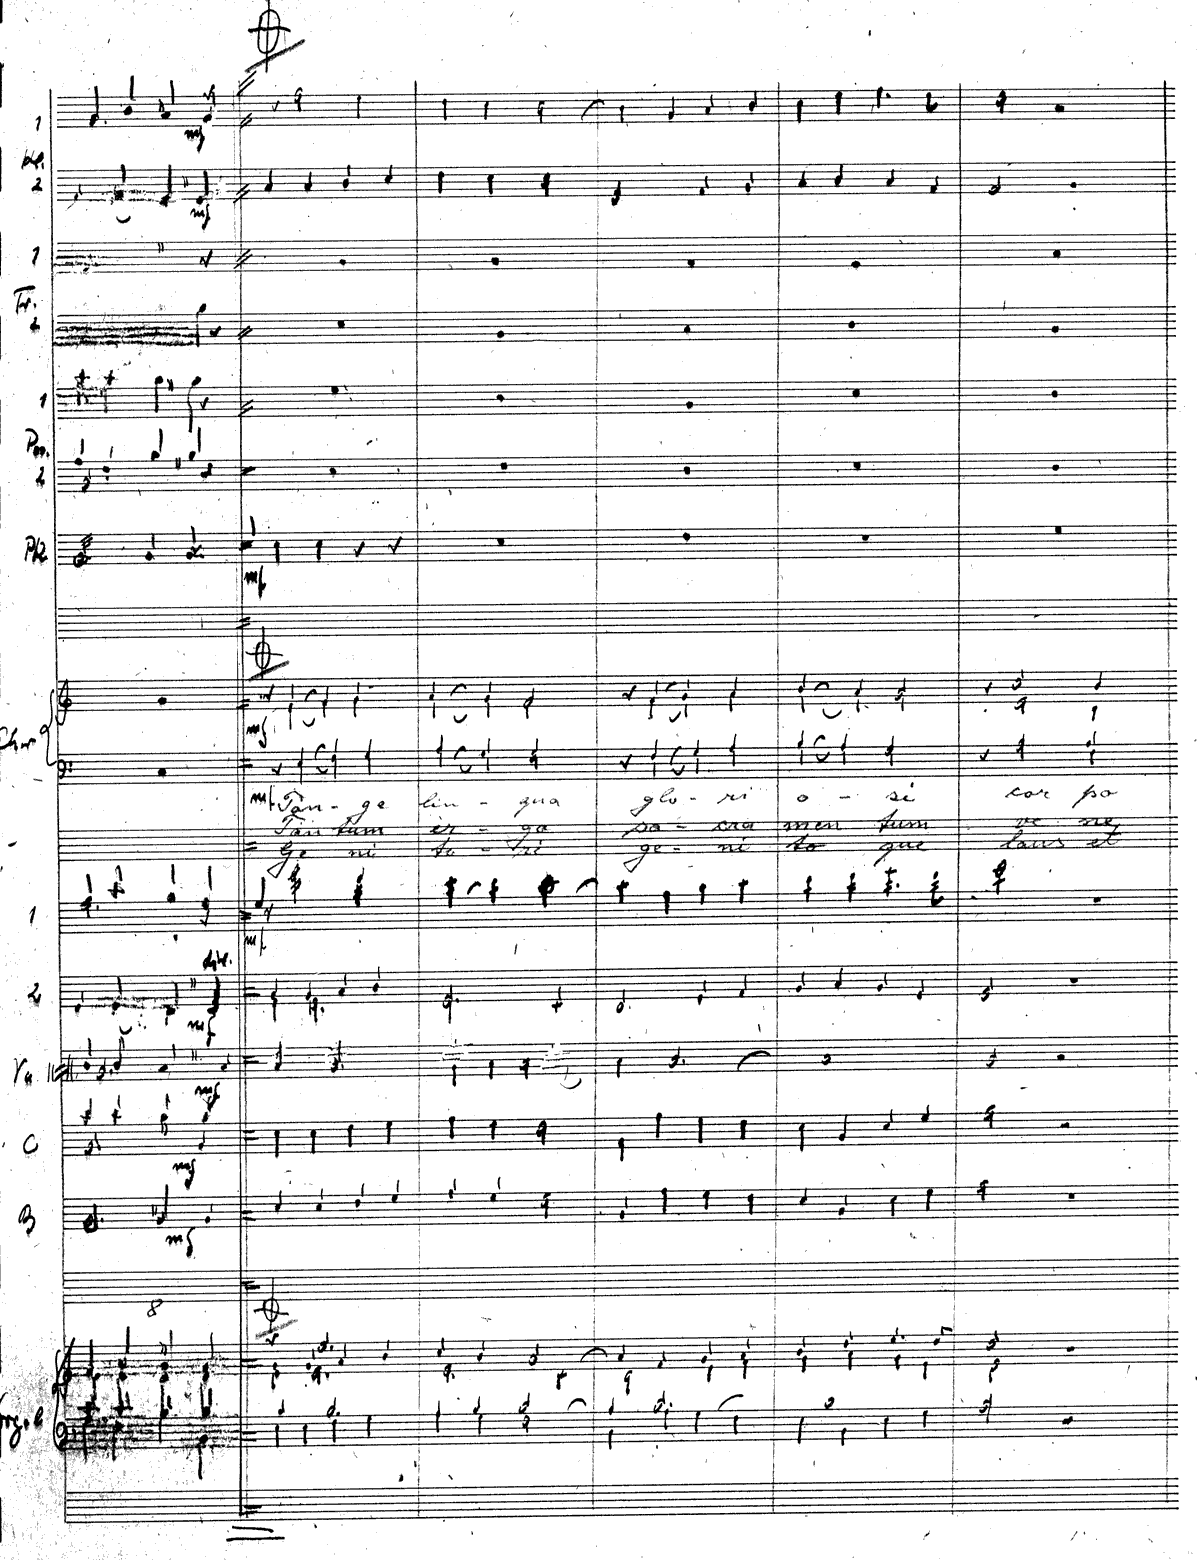 1
mf
Kl.
2
mf
1
Tr.
2
1
Pos.
2
Pk
mf
Chor
mf
mf Pan - ge lin - gua glo - ri o - si cor po
Tan tum er - go sa - cra men tum ve ne
Ge ni to - ri ge - ni to que laus et
1
mf
div.
2
mf
Va
mf
C
mf
B
mf
8
Orgel